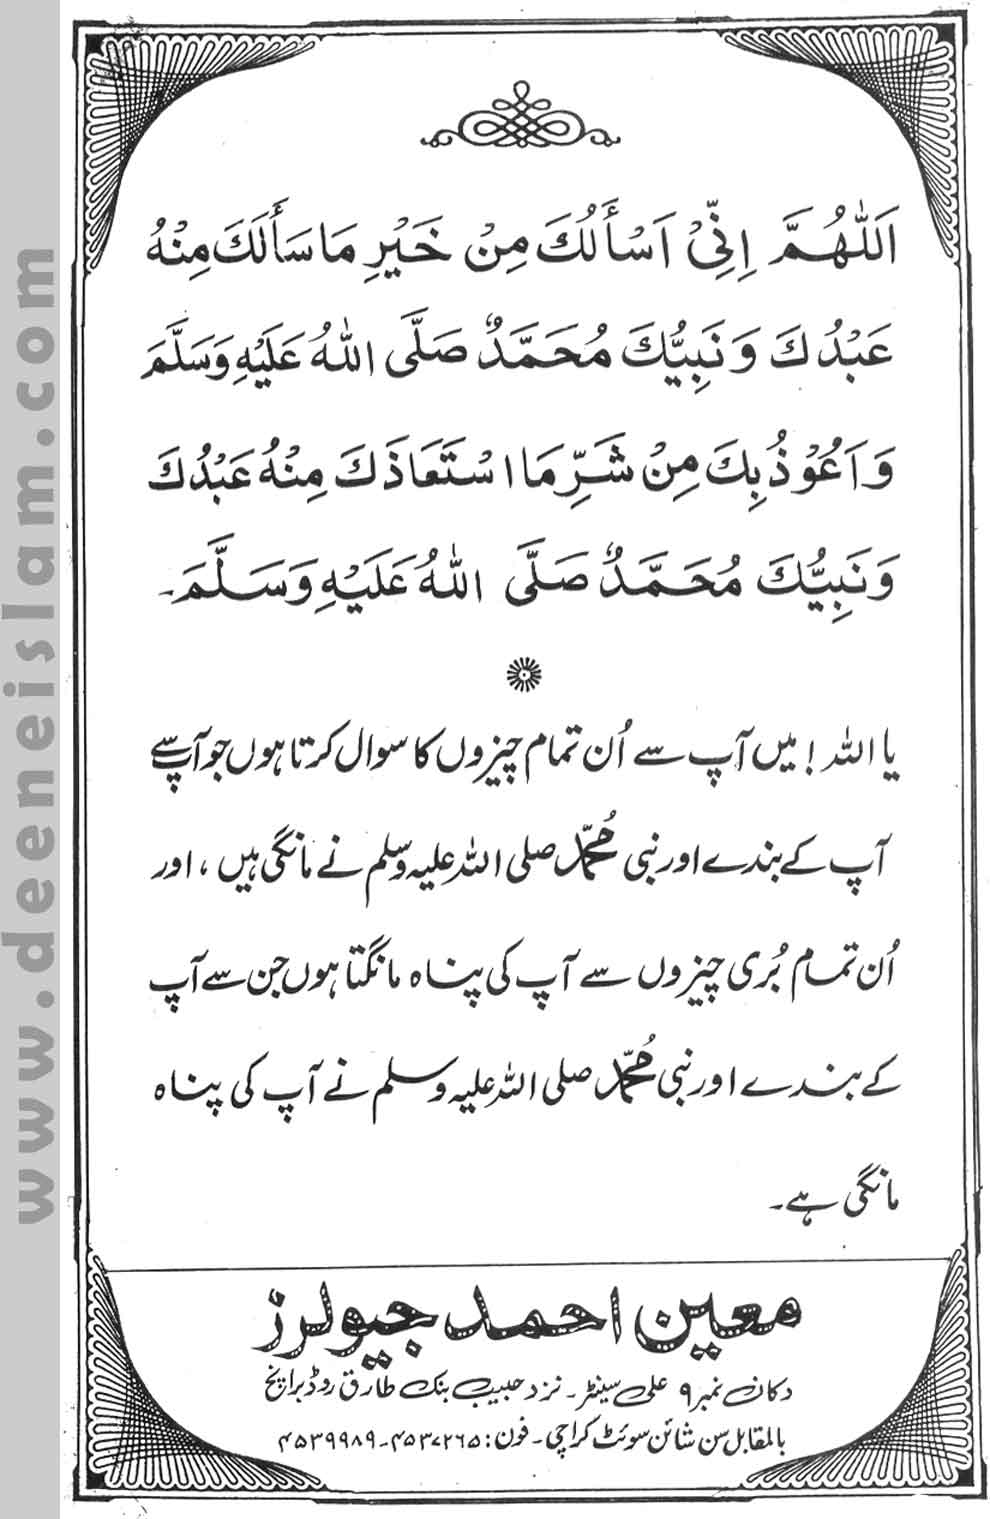 اَللّٰهُمَّ اِنِّیْ اَسْأَلُكَ مِنْ خَيْرِ مَا سَأَلَكَ مِنْهُ
عَبْدُكَ وَنَبِيُّكَ مُحَمَّدٌ صَلَّى اللهُ عَلَيْهِ وَسَلَّمَ
وَاَعُوْذُ بِكَ مِنْ شَرِّ مَا اسْتَعَاذَكَ مِنْهُ عَبْدُكَ
وَنَبِيُّكَ مُحَمَّدٌ صَلَّى اللهُ عَلَيْهِ وَسَلَّمَ۔
یا اللہ! میں آپ سے اُن تمام چیزوں کا سوال کرتا ہوں جو آپ سے
آپ کے بندے اور نبی مُحمّد صلی اللہ علیہ وسلم نے مانگی ہیں، اور
اُن تمام بُری چیزوں سے آپ کی پناہ مانگتا ہوں جن سے آپ
کے بندے اور نبی مُحمّد صلی اللہ علیہ وسلم نے آپ کی پناہ
مانگی ہے۔
معین احمد جیولرز
دکان نمبر ۹ علی سینٹر۔ نزد حبیب بنک طارق روڈ برانچ
بالمقابل سن شائن سوئٹ کراچی۔ فون: ۴۵۳۷۲۶۵-۴۵۳۹۹۸۹
www.deeneislam.com